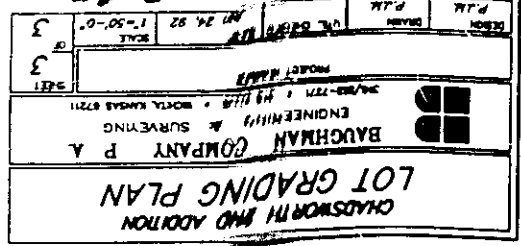 CHADSWORTH 2ND ADDITION
LOT GRADING PLAN
BAUGHMAN COMPANY P. A.
ENGINEERING & SURVEYING
WICHITA, KANSAS 67211
PROJECT NUMBER
SHEET
3
OF
3
DESIGN
P.J.M.
DRAWN
P.J.M.
24, 92
SCALE
1"=50'-0"